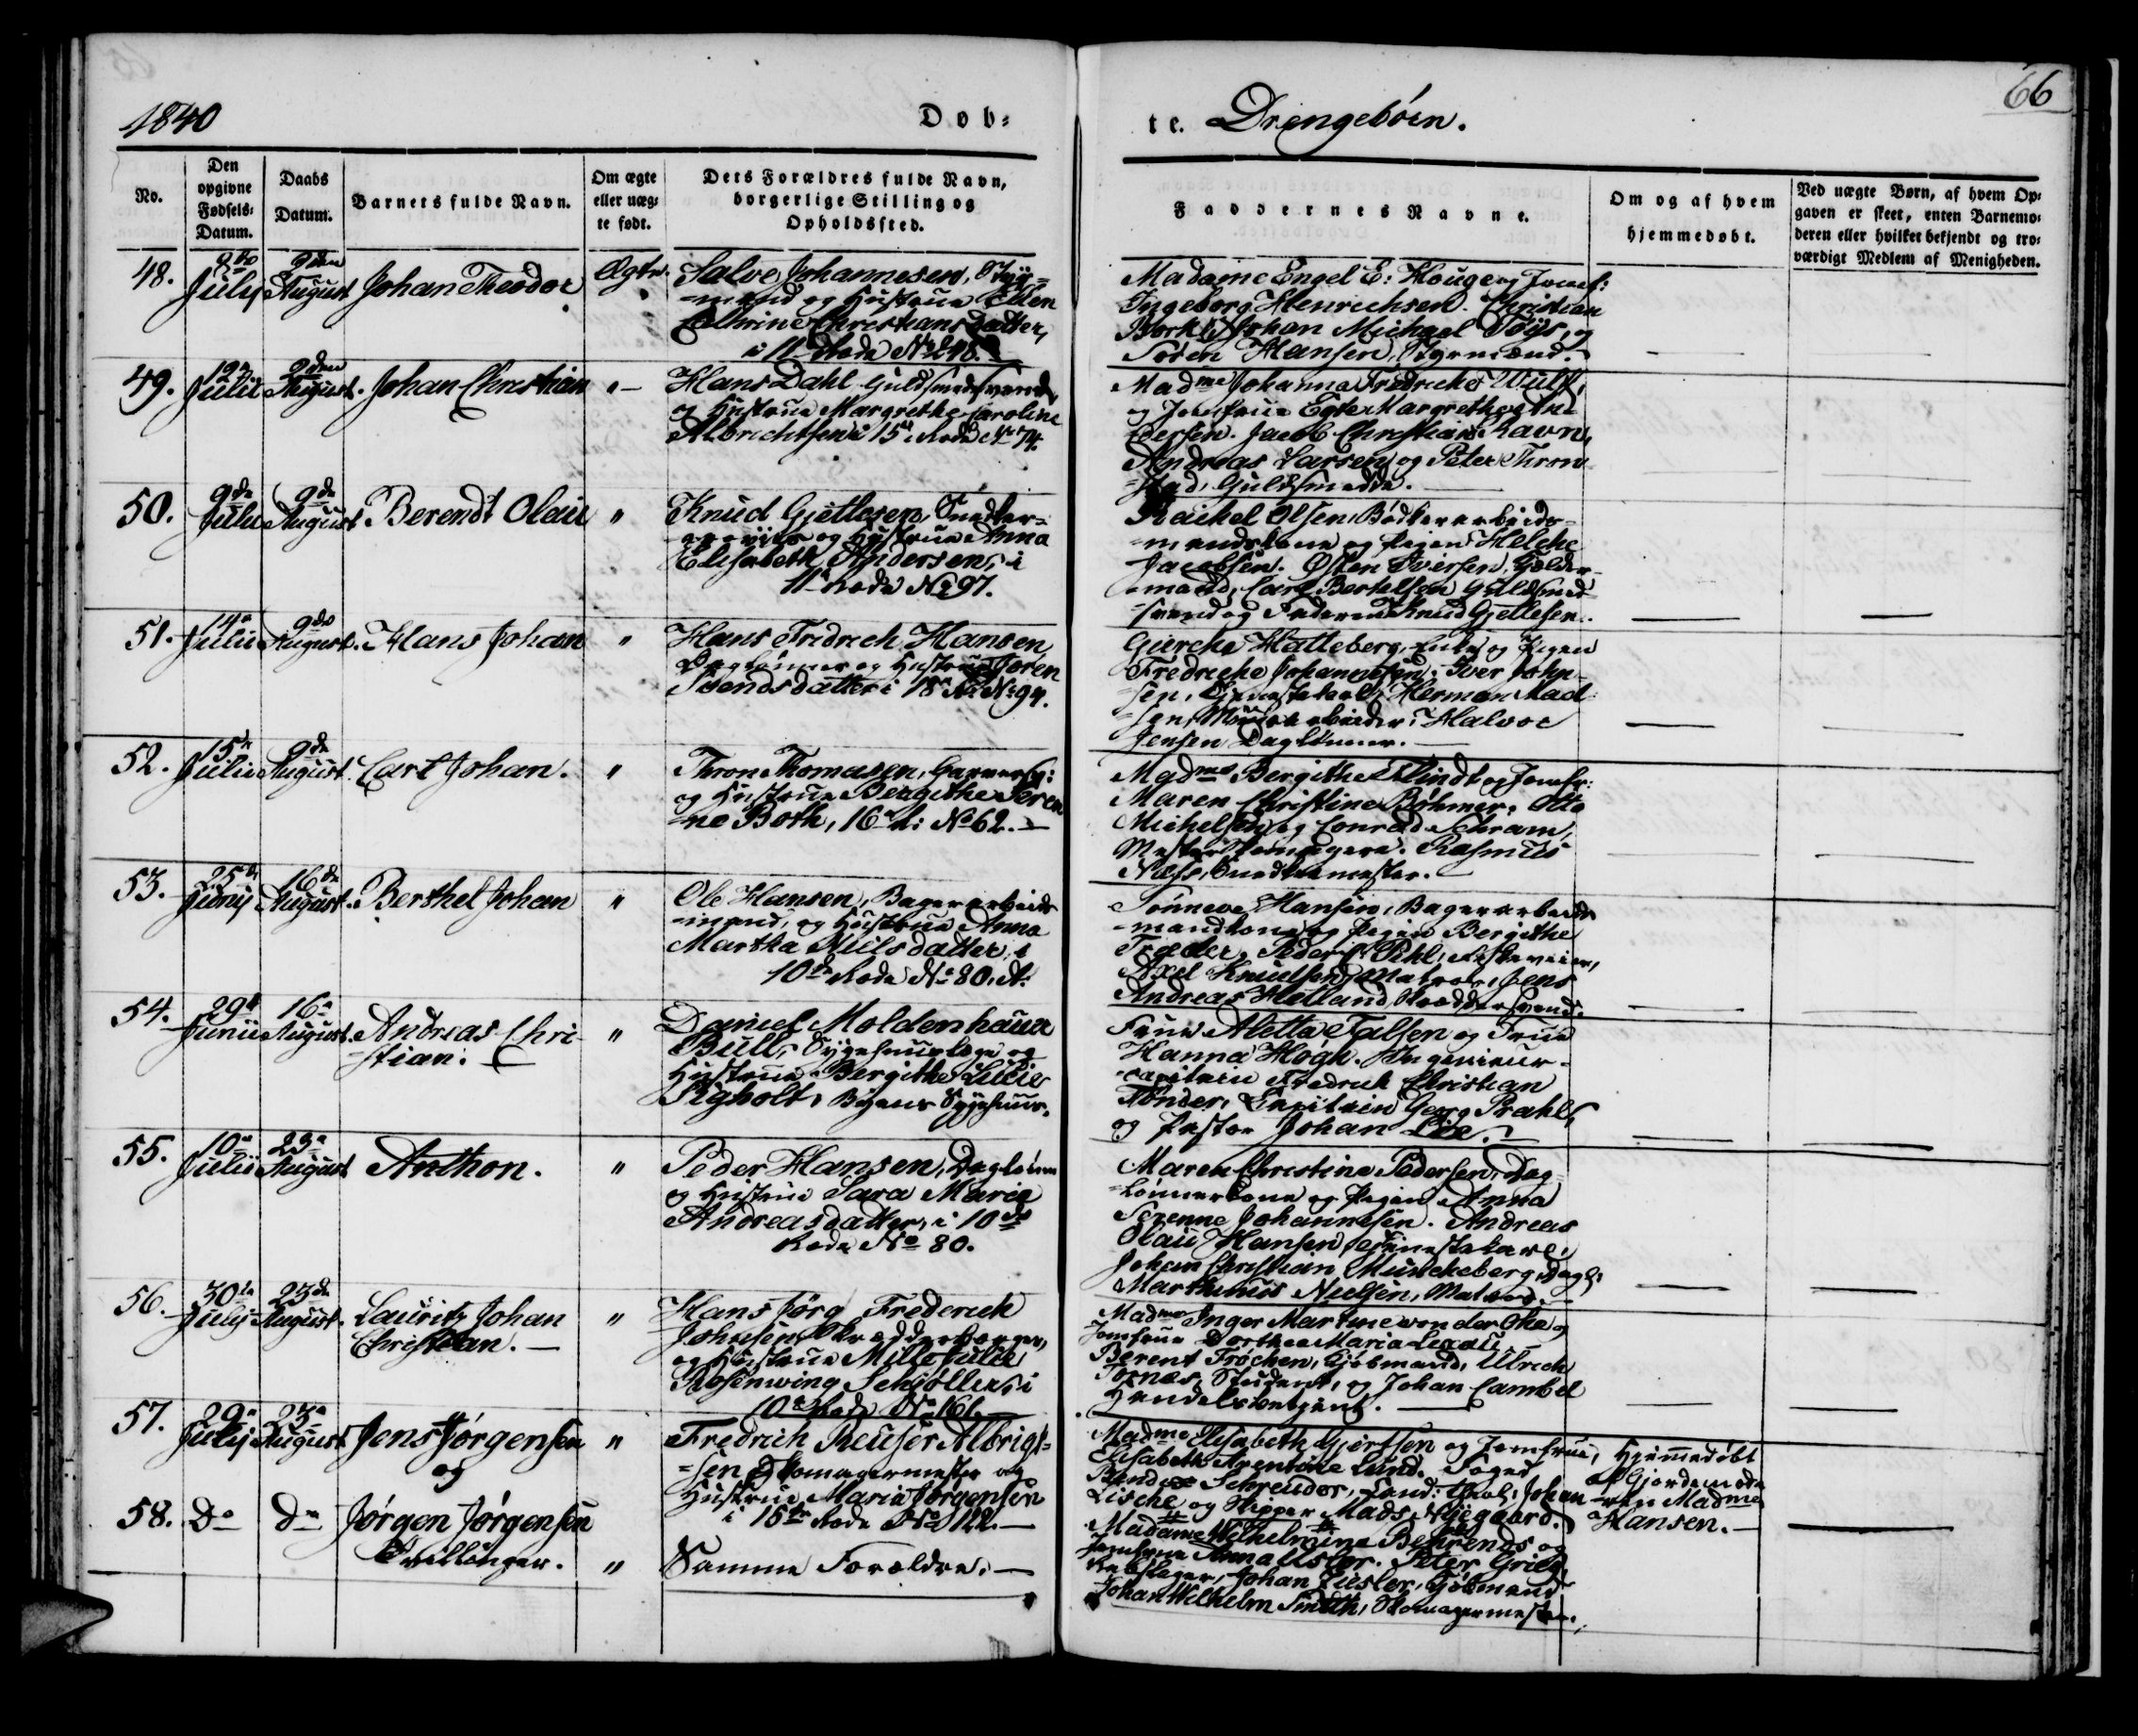 66
1840
Døb-
te. Drengebörn.
No.
Den
opgivne
Fødsels-
Datum.
Daabs
Datum.
Barnets fulde Navn.
Om ægte
eller uæg-
te født.
Dets Forældres fulde Navn,
borgerlige Stilling og
Opholdssted.
Faddernes Navne.
Om og af hvem
hjemmedøbt.
Ved uægte Børn, af hvem Op-
gaven er skeet, enten Barnemo-
deren eller hvilket bekjendt og tro-
værdigt Medlem af Menigheden.
48.
July
9den
August
Johan Theodor
Ægte.
Salve Johannesen, Styr-
-mand og Hustrue Ellen
Cathrine Christiansdatter,
i 11 Rode No 248.
Madame Engel E. Houge og Jomf:
Ingeborg Henrichsen. Christian
Bork, Johan Michael Föys, og
Sören Hansen, Styrmænd.
49.
19de
Julii
9den
August.
Johan Christian
"
Hans Dahl Guldsmedsvend,
og Hustrue Margrethe Caroline
Albrichtsen i 15de Rode No 74.
Madme Johanna Fredricke Wulf,
og Jomfrue Egte Margrethe An-
dersen. Jacob Christian Ravn,
Andreas Larsen og Peter Thron-
-stad, Guldsmedde.
50.
9de
Julii
9de
August
Berendt Olaii
"
Knud Gjetlesen, Snedker-
og Hustrue Anna
Elisabeth Andersen, i
11te Rode No 97.
Rachel Olsen, Bödkerarbeids-
-mandskone og Pigen Helche
Jacobsen. Østen Iversen, Gælder-
-mand, Carl Bertelsen Guldsmed-
-svend og Faderen Knud Gjetlesen.
51.
14de
Julii
9de
August.
Hans Johan
"
Hans Fridrich Hansen,
Daglönner og Hustrue Joren
Svendsdatter i 18de R. No 94.
Giercke Hatteberg, Enke og Pigen
Fredricke Johannesen. Iver John-
-sen, Tjenestekarl, Herman Mad-
-sen, Muurarbeider, Halvor
Jensen Daglönner.
52.
15de
Julii
9de
August.
Carl Johan.
"
Thron Thomasen, Garversv:
og Hustrue Bergithe Seren-
-ne Both, 16de R: No 62.
Madme Bergithe Flindt og Jomfr:
Maren Christine Böhmer. Otto
Michelsen og Conrad Schram,
Mester Skomagere. Rasmus
Næss, Snedkermester.
53.
25de
Junij
16de
August.
Berthel Johan
"
Ole Hansen, Bagerarbeids-
-mand, og Hustrue Anna
Martha Nielsdatter, i
10de Rode No 80. A.
Sönneve Hansen, Bagerarbeids-
mandkone og Pigen Bergithe
Træder. Peder Pihl,
Axel Knudsen, Matros, Jens
Andreas Helland, Skræddersvend.
54.
29de
Junii
16de
August.
Andreas Chri-
-stian.
"
Daniel Moldenhauer
Bull, Sygehuuslæge og
Hustrue Bergithe Lucie
Sigholt, Byens Sygehuus.
Frue Aletta Falsen og Frue
Hanna Høgh. Ingenieur-
-capitain Fredrick Christian
Tönder, Capitain Georg Prahl,
og Pastor Johan Lie.
55.
10de
Julii
23de
August
Anthon.
"
Peder Hansen, Daglönner
og Hustrue Sara Marie
Andreasdatter, i 10de
Rode No 80.
Maren Christine Pedersen, Dag-
lönnerkone og Pigen Anna
Serenne Johannesen. Andreas
Olaii Hansen Tjenestekarl,
Johan Christian Munckeberg, Dagl:
Marthinus Nielsen, Matros.
56.
30te
Julij
23de
August.
Lauritz Johan
Christian.
"
Hans Jörg Frederich
Johnsen Skrædderborger,
og Hustrue Mille Julie
Rosenwing Schjöller, i
10de Rode No 161.
Madme Inger Martine von der Ohe og
Jomfrue Dorthea Maria Lexau.
Berent Fröchen, Kjöbmand, Ulrich
Tornæs, Student, og Johan Cambel
Handelsbetjent.
57.
29de
Julij
23de
August
Jens Jörgensen
og
"
Fredrich Reuser Albrigt-
-sen Skomagermester og
Hustrue Maria Jörgensen
i 15de Rode No 122.
Madme Elisabeth Gjertsen og Jomfrue
Elisabeth Arentine Lund. Foged
Schreuder, Johan
Lische og Skipper Mads Nygaard.
Hjemmedöbt
af Gjordemode-
-ren Madme
Hansen.
58.
Do
Do
Jörgen Jörgensen
Tvillinger.
"
Samme Forældre.
Madame Wilhelmine Behrends og
Jomfrue Anna Usler. Peter Grieg,
Rebslager, Johan Zeisler, Kjöbmand
Johan Wilhelm Smith, Skomagermester.